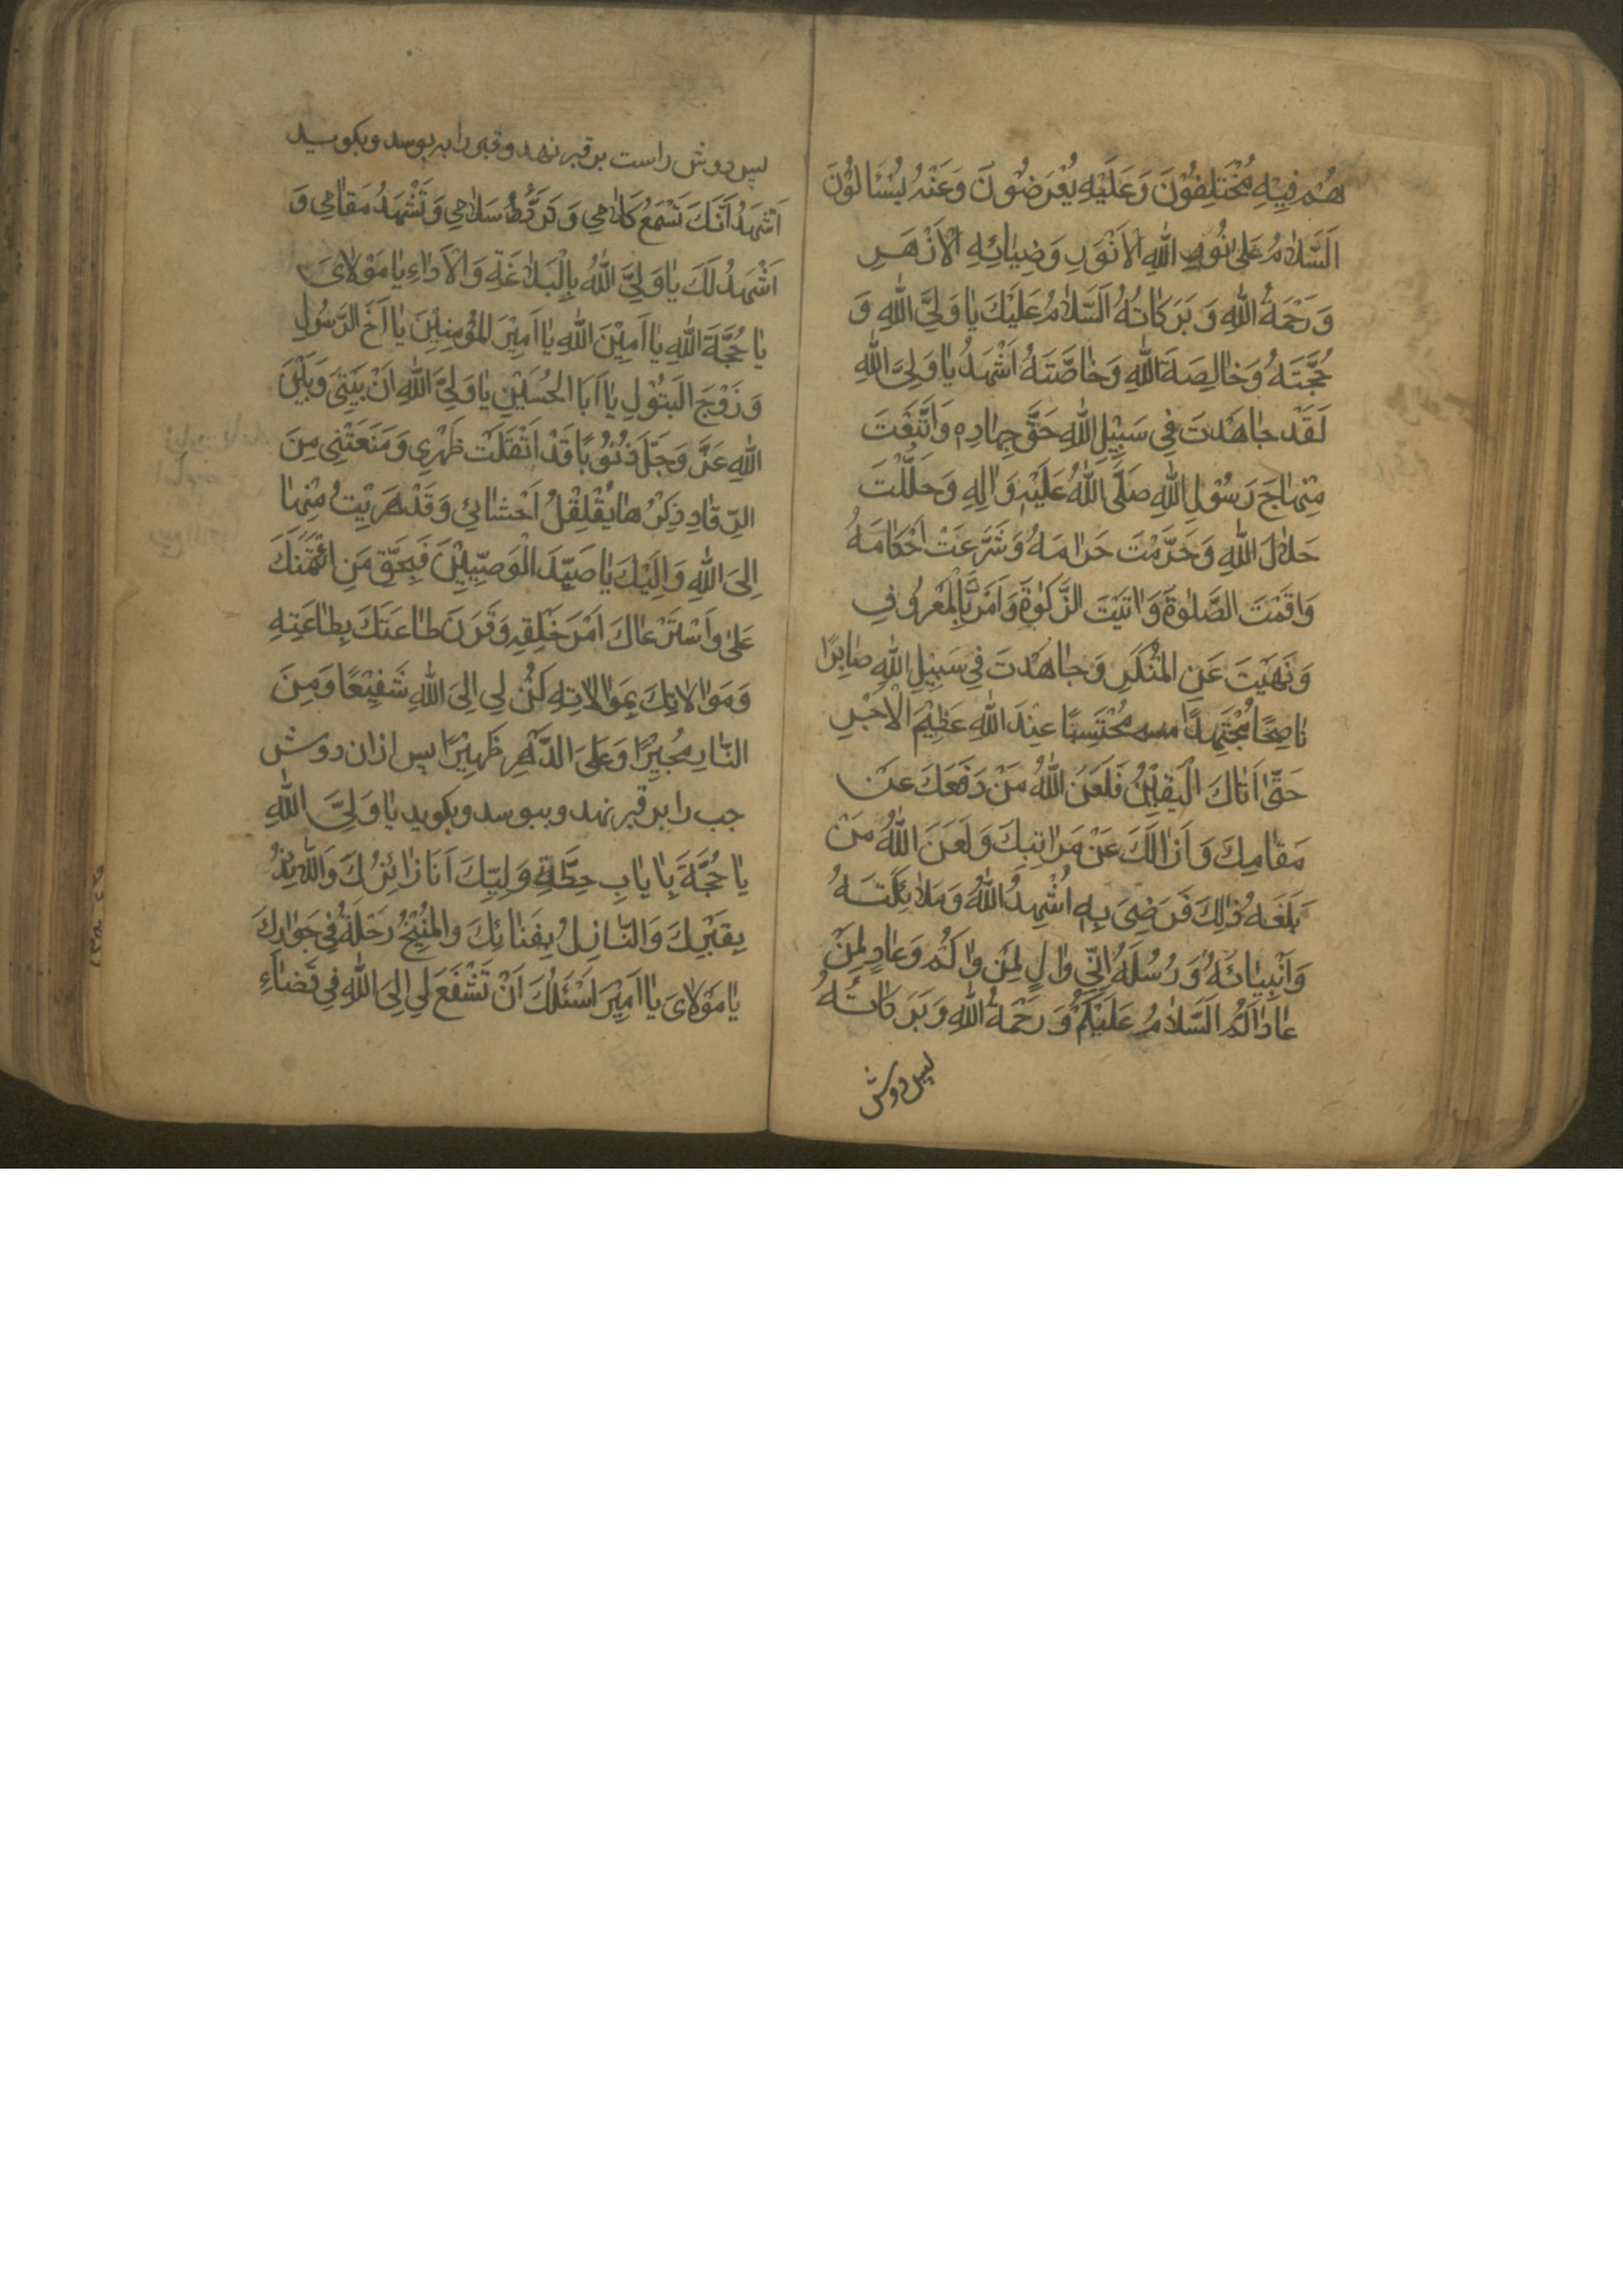 هُمْ فِيْهِ مُخْتَلِفُوْنَ وَعَلَيْهِ يُعْرَضُوْنَ وَعَنْهُ يُسْئَالُوْنَ
اَلسَّلَامُ عَلىٰ نُورِ اللهِ الْاَنْوَرِ وَضِيٰائِهِ الْاَزْهَرِ
وَرَحْمَةُ اللهِ وَبَرَكٰاتُهُ اَلسَّلَامُ عَلَيْكَ يٰا وَلِيَّ اللهِ وَ
حُجَّتَهُ وَخٰالِصَةَ اللهِ وَخٰاصَّتَهُ اَشْهَدُ يٰا وَلِيَّ اللهِ
لَقَدْ جٰاهَدْتَ فِي سَبِيْلِ اللهِ حَقَّ جِهٰادِهِ وَاتَّبَعْتَ
مِنْهٰاجَ رَسُوْلِ اللهِ صَلَّى اللهُ عَلَيْهِ وَاٰلِهِ وَحَلَّلْتَ
حَلَالَ اللهِ وَحَرَّمْتَ حَرٰامَهُ وَشَرَّعَتْ اَحْكٰامَهُ
وَاَقَمْتَ الصَّلوٰةَ وَاٰتَيْتَ الزَّكوٰةَ وَاَمَرْتَ بِالْمَعْرُوفِ
وَنَهَيْتَ عَنِ الْمُنْكَرِ وَجٰاهَدْتَ فِي سَبِيْلِ اللهِ صٰابِرًا
نٰاصِحًا مُجْتَهِدًا مُحْتَسِبًا عِنْدَ اللهِ عَظِيْمَ الْاَجْرِ
حَتّٰى اَتٰاكَ الْيَقِيْنُ فَلَعَنَ اللهُ مَنْ دَفَعَكَ عَنْ
مَقٰامِكَ وَاَزٰالَكَ عَنْ مَرٰاتِبِكَ وَلَعَنَ اللهُ مَنْ
بَلَغَهُ ذٰلِكَ فَرَضِىَ بِهِ اُشْهِدُ اللهَ وَمَلَائِكَتَهُ
وَاَنْبِيٰائَهُ وَرُسُلَهُ اِنِّي وٰالٍ لِمَنْ وٰالَاكُمْ وَعٰادٍ لِمَنْ
عٰادٰاكُمْ اَلسَّلَامُ عَلَيْكُمْ وَرَحْمَةُ اللهِ وَبَرَكٰاتُهُ
پس دوش
پس دوش راست بر قبر نهد و قبر را به بوسد و بكويد
اَشْهَدُ اَنَّكَ تَسْمَعُ كَلَامِي وَتَرُدُّ سَلَامِي وَتَشْهَدُ مَقٰامِي وَ
اَشْهَدُ لَكَ يٰا وَلِيَّ اللهِ بِالْبَلَاغَةِ وَالْاَدٰاءِ يٰا مَوْلَاىَ
يٰا حُجَّةَ اللهِ يٰا اَمِيْنَ اللهِ يٰا اَمِيْرَ الْمُؤْمِنِيْنَ يٰا اَخَ الرَّسُوْلِ
وَزَوْجَ الْبَتُوْلِ يٰا اَبَا الْحُسَيْنِ يٰا وَلِيَّ اللهِ اَنْ بَيْنِىْ وَبَيْنَ
اللهِ عَزَّ وَجَلَّ ذُنُوْبًا قَدْ اَثْقَلَتْ ظَهْرِي وَمَنَعَتْنِي مِنَ
الرّقٰادِ ذِكْرُهٰا يُقَلْقِلُ اَحْشٰائِي وَقَدْ هَرَبْتُ مِنْهٰا
اِلَى اللهِ وَاِلَيْكَ يٰا صَيِّدَ الْوَصِيِّيْنَ فَبِحَقِّ مَنِ ائْتَمَنَكَ
عَلىٰ وَاسْتَرْعٰاكَ اَمْرَ خَلْقِهِ وَقَرَنَ طٰاعَتَكَ بِطٰاعَتِهِ
وَمَوٰالَاتِكَ بِمَوٰالَاتِهِ كُنْ لِي اِلَى اللهِ شَفِيْعًا وَمِنَ
النّٰارِ مُجِيْرًا وَعَلَى الدَّهْرِ ظَهِيْرًا پس ازان دوش
چب را بر قبر نهد و ببوسد و بكويد يٰا وَلِيَّ اللهِ
يٰا حُجَّةَ يٰا بٰابِ حِطَّةِ وَلِيِّكَ اَنَا زٰائِرُكَ وَاللَّائِذُ
بِقَبْرِكَ وَالنّٰازِلُ بِفَنٰائِكَ وَالْمُنِيْخُ رَحْلَهُ فِي جَوٰارِكَ
يٰا مَوْلَاىَ يٰا اَمِيْرَ اَسْئَلُكَ اَنْ تَشْفَعَ لِي اِلَى اللهِ فِي قَضٰاءِ